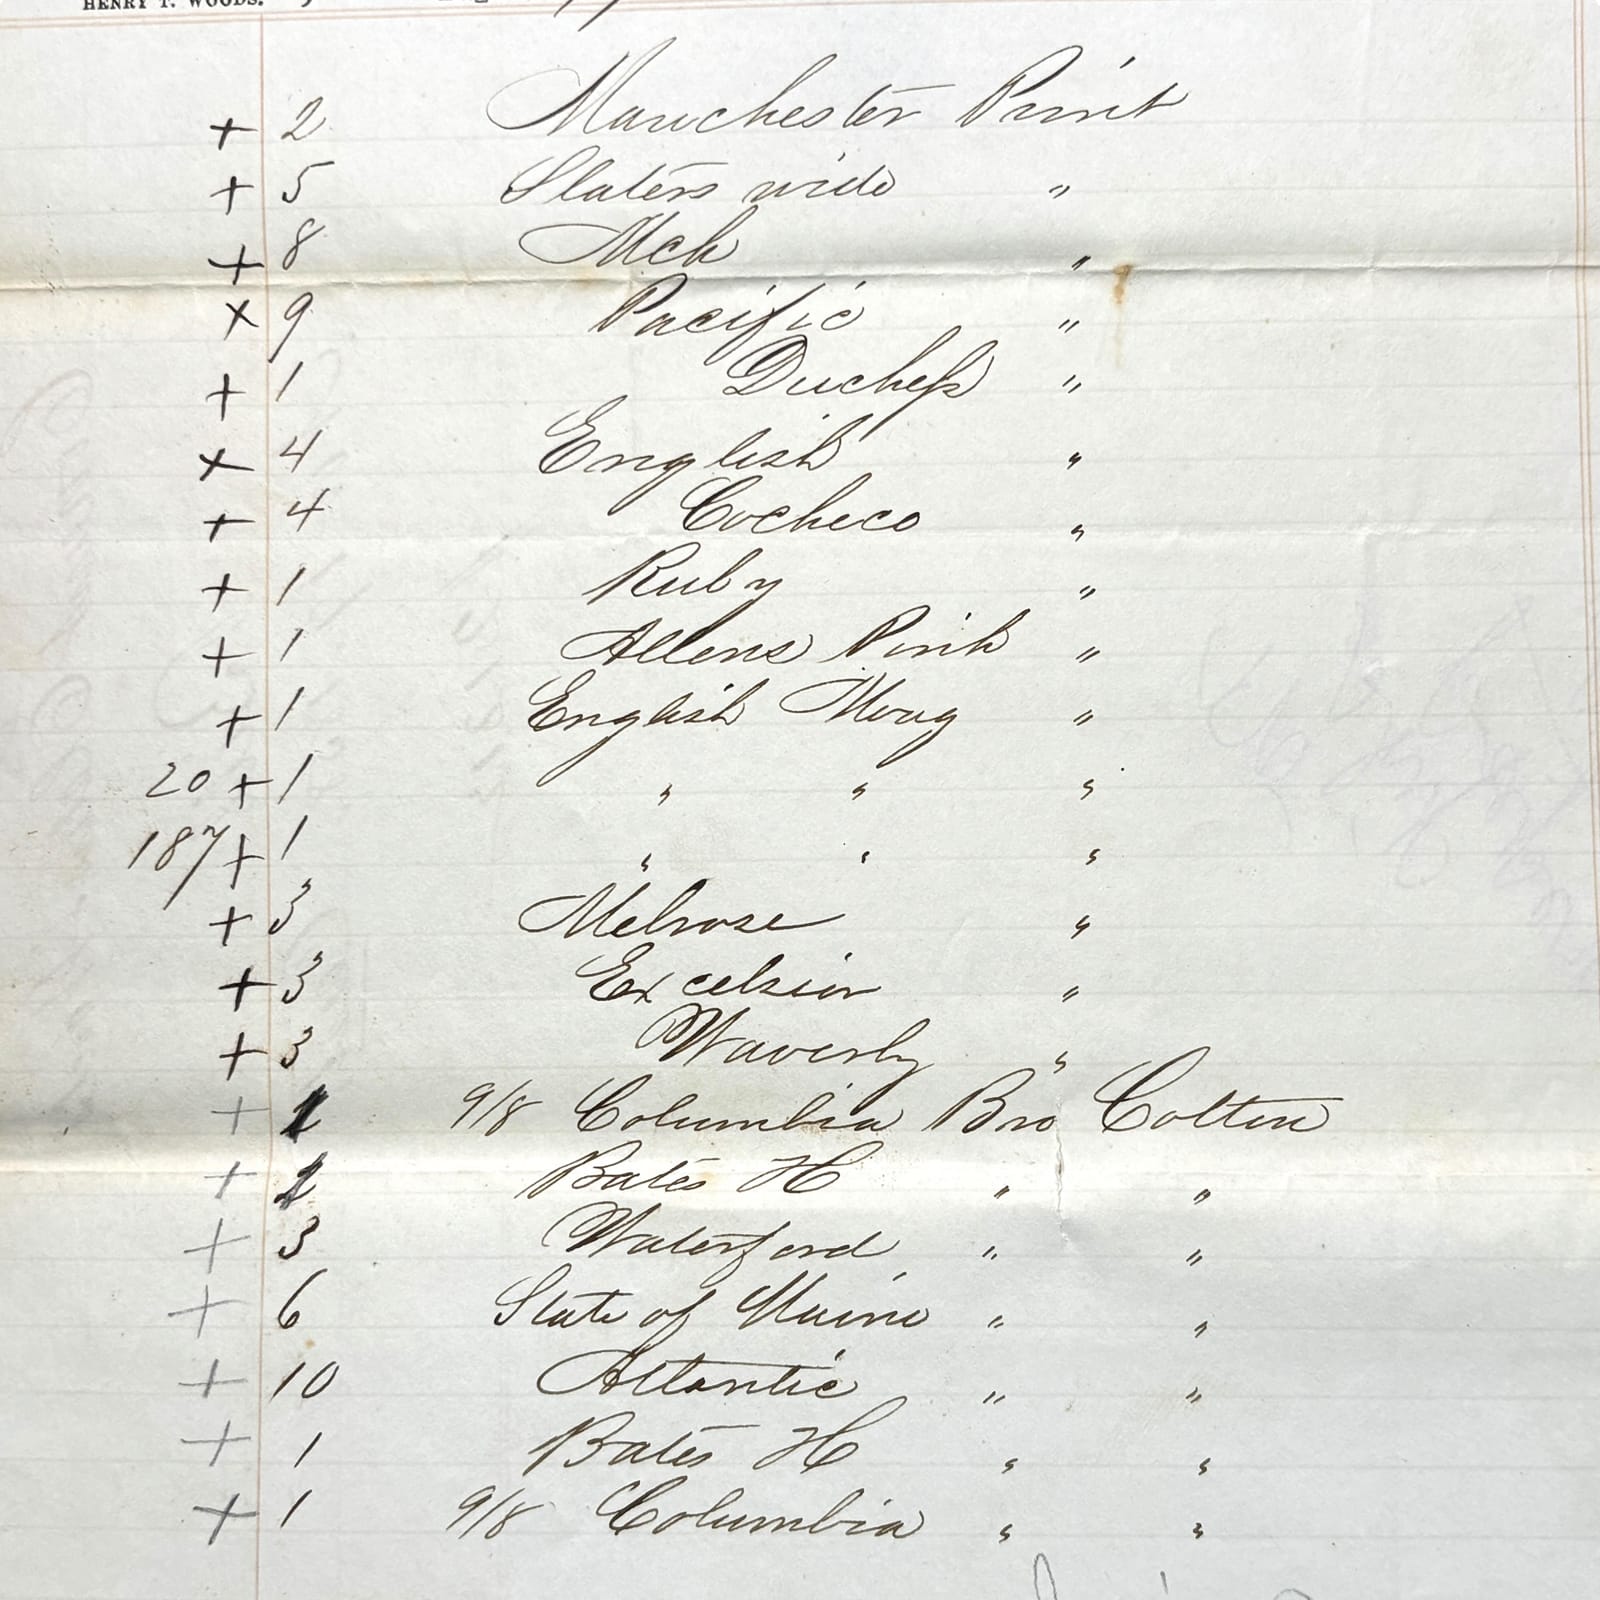 HENRY T. WOODS.
+ 2 Manchester Print
+ 5 Slaters wide "
+ 8 Mch "
x 9 Pacific "
+ 1 Duchess "
x 4 English "
+ 4 Cocheco "
+ 1 Ruby "
+ 1 Allens Pink "
+ 1 English Mourg "
20 + 1 " " "
187 + 1 " " "
+ 3 Melrose "
+ 3 Excelsior "
+ 3 Waverly "
+ 9/8 Columbia Bro Cotton
+ Bates H " "
+ 3 Waterford " "
+ 6 State of Maine " "
+ 10 Atlantic " "
+ 1 Bates H " "
+ 1 9/8 Columbia " "